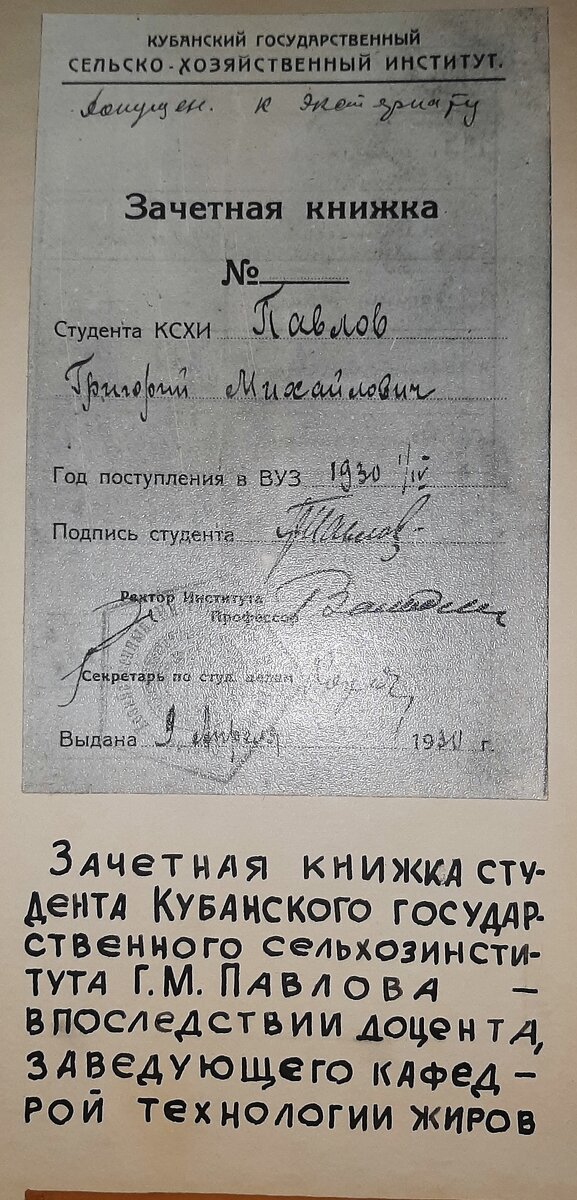 КУБАНСКИЙ ГОСУДАРСТВЕННЫЙ
СЕЛЬСКО-ХОЗЯЙСТВЕННЫЙ ИНСТИТУТ.
Допущен. к экстернату
Зачетная книжка
№
Студента КСХИ Павлов
Григорий Михайлович
Год поступления в ВУЗ 1930 1/IV
Подпись студента ГПавлов
Ректор Института
Профессор
Секретарь по студ. делам
Выдана 9 Апреля 1930 г.
Зачетная книжка сту-
дента Кубанского государ-
ственного сельхозинсти-
тута Г.М. Павлова —
впоследствии доцента,
заведующего кафед-
рой технологии жиров